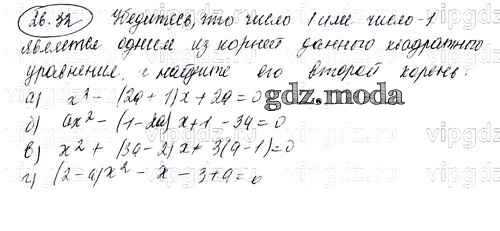 26.32 Убедитесь, что число 1 или число -1
является одним из корней данного квадратного
уравнения, и найдите его второй корень:
а) x² - (2a + 1)x + 2a = 0
б) ax² - (1-2a)x + 1 - 3a = 0
в) x² + (3a - 2)x + 3(a - 1) = 0
г) (2 - a)x² - x - 3 + a = 0
gdz.moda